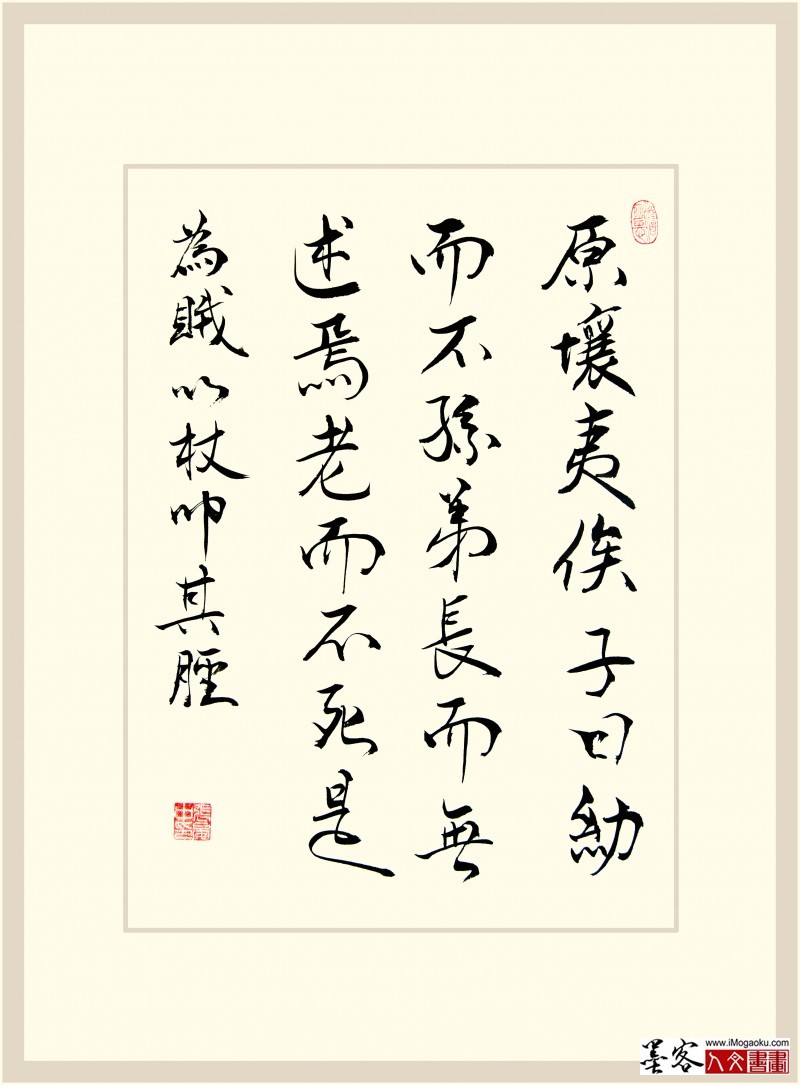 原壤夷俟子曰幼
而不孫弟長而無
述焉老而不死是
為賊以杖叩其脛
墨客
www.iMogaoku.com
人文書畫